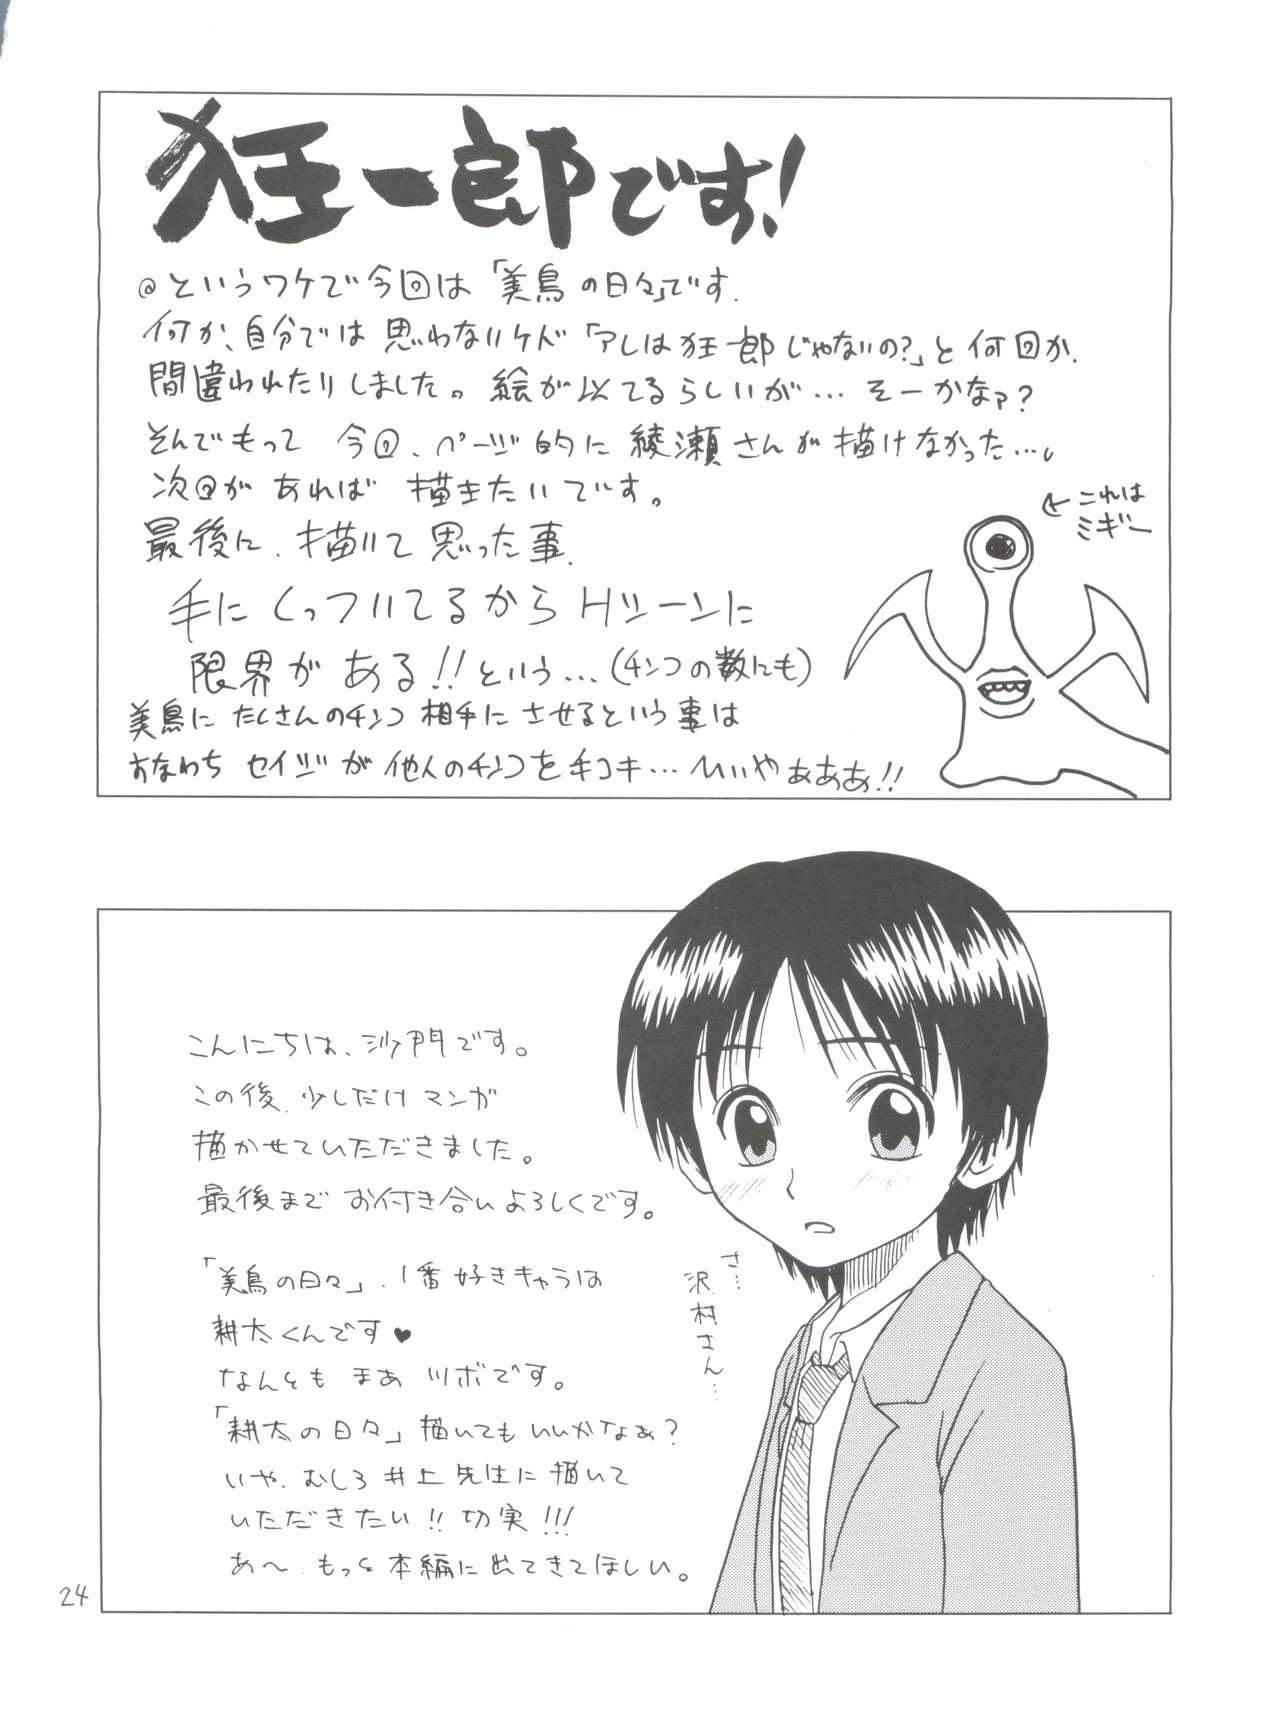 狂一郎です!
@というワケで今回は「美鳥の日々」です.
何か、自分では思わないケド「アレは狂一郎じゃないの?」と何回か.
間違われたりしました。絵が似てるらしいが… そーかなァ?
そんでもって 今回、ページ的に綾瀬さんが描けなかった…。
次回があれば 描きたいです。
最後に、描いて思った事.
手にくっついてるからHシーンに
限界がある!!という…(チンコの数にも)
美鳥にたくさんのチンコ相手にさせるという事は
すなわち セイジが他人のチンコを手コキ… いいやぁぁぁ!!
←これは
ミギー
こんにちは、沙門です。
この後、少しだけマンガ
描かせていただきました。
最後まで お付き合いよろしくです。
「美鳥の日々」、1番好きキャラは
耕太くんです♥
なんとも まあ ツボです。
「耕太の日々」描いてもいいかなぁ?
いや、むしろ井上先生に描いて
いただきたい!!切実!!!
あ〜、もっと本編に出てきてほしい。
さ…
沢村さん…
24